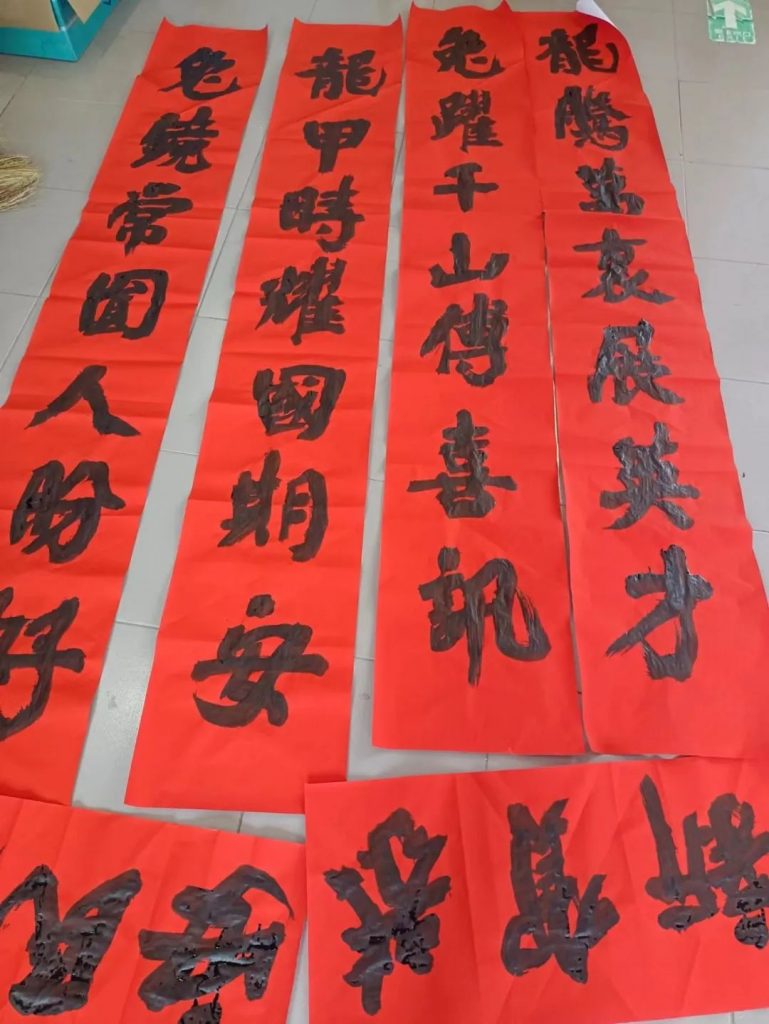 龍騰萬裏展英才
兔躍千山傳喜訊
龍甲時耀國期安
兔鏡常圓人盼好
賀新